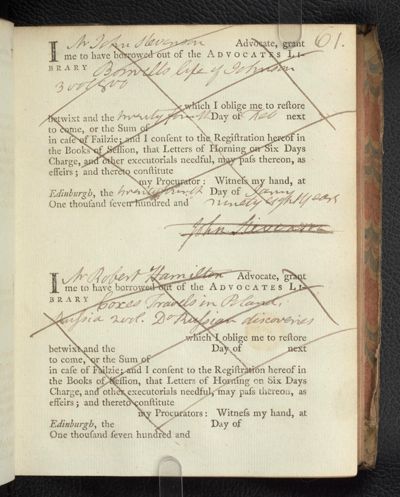 61.
I Mr John Stevenson Advocate, grant
me to have borrowed out of the ADVOCATES LI-
BRARY Boswells life of Johnson
3 vols 8vo
which I oblige me to reſtore
betwixt and the twenty fourth Day of Feb next
to come, or the Sum of
in caſe of Failzie; and I conſent to the Regiſtration hereof in
the Books of Seſſion, that Letters of Horning on Six Days
Charge, and other executorials needful, may paſs thereon, as
effeirs; and thereto conſtitute
my Procurator: Witneſs my hand, at
Edinburgh, the Day of Jany
One thouſand ſeven hundred and ninety eight years
John Stevenson
I Mr Robert Hamilton Advocate, grant
me to have borrowed out of the ADVOCATES LI-
BRARY Coxes Travels in Poland,
Russia 2vol. Do Russian discoveries
which I oblige me to reſtore
betwixt and the Day of next
to come, or the Sum of
in caſe of Failzie; and I conſent to the Regiſtration hereof in
the Books of Seſſion, that Letters of Horning on Six Days
Charge, and other executorials needful, may paſs thereon, as
effeirs; and thereto conſtitute
my Procurators: Witneſs my hand, at
Edinburgh, the Day of
One thouſand ſeven hundred and